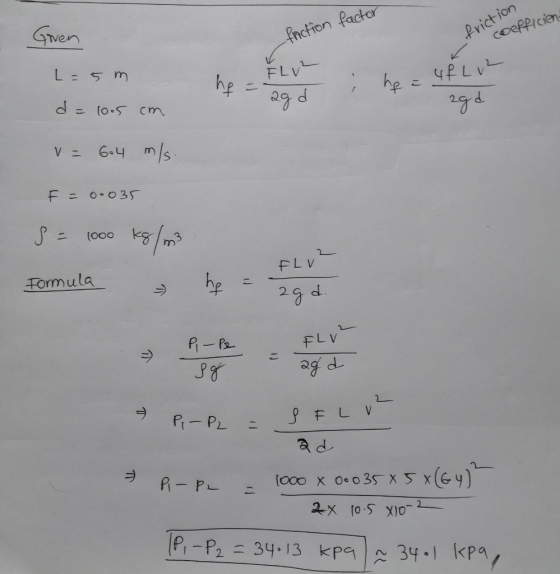 Given
friction factor
friction coefficien
L = 5 m
h_f = FLV²/2gd ; h_f = 4fLV²/2gd
d = 10.5 cm
V = 6.4 m/s.
F = 0.035
ρ = 1000 kg/m³
Formula ⇒ h_f = FLV²/2gd.
⇒ P₁-P₂/ρg = FLV²/2gd
⇒ P₁-P₂ = ρFLV²/2d
⇒ P₁-P₂ = 1000 × 0.035 × 5 × (6.4)²/2 × 10.5 × 10⁻²
P₁-P₂ = 34.13 kPa ≈ 34.1 kPa,